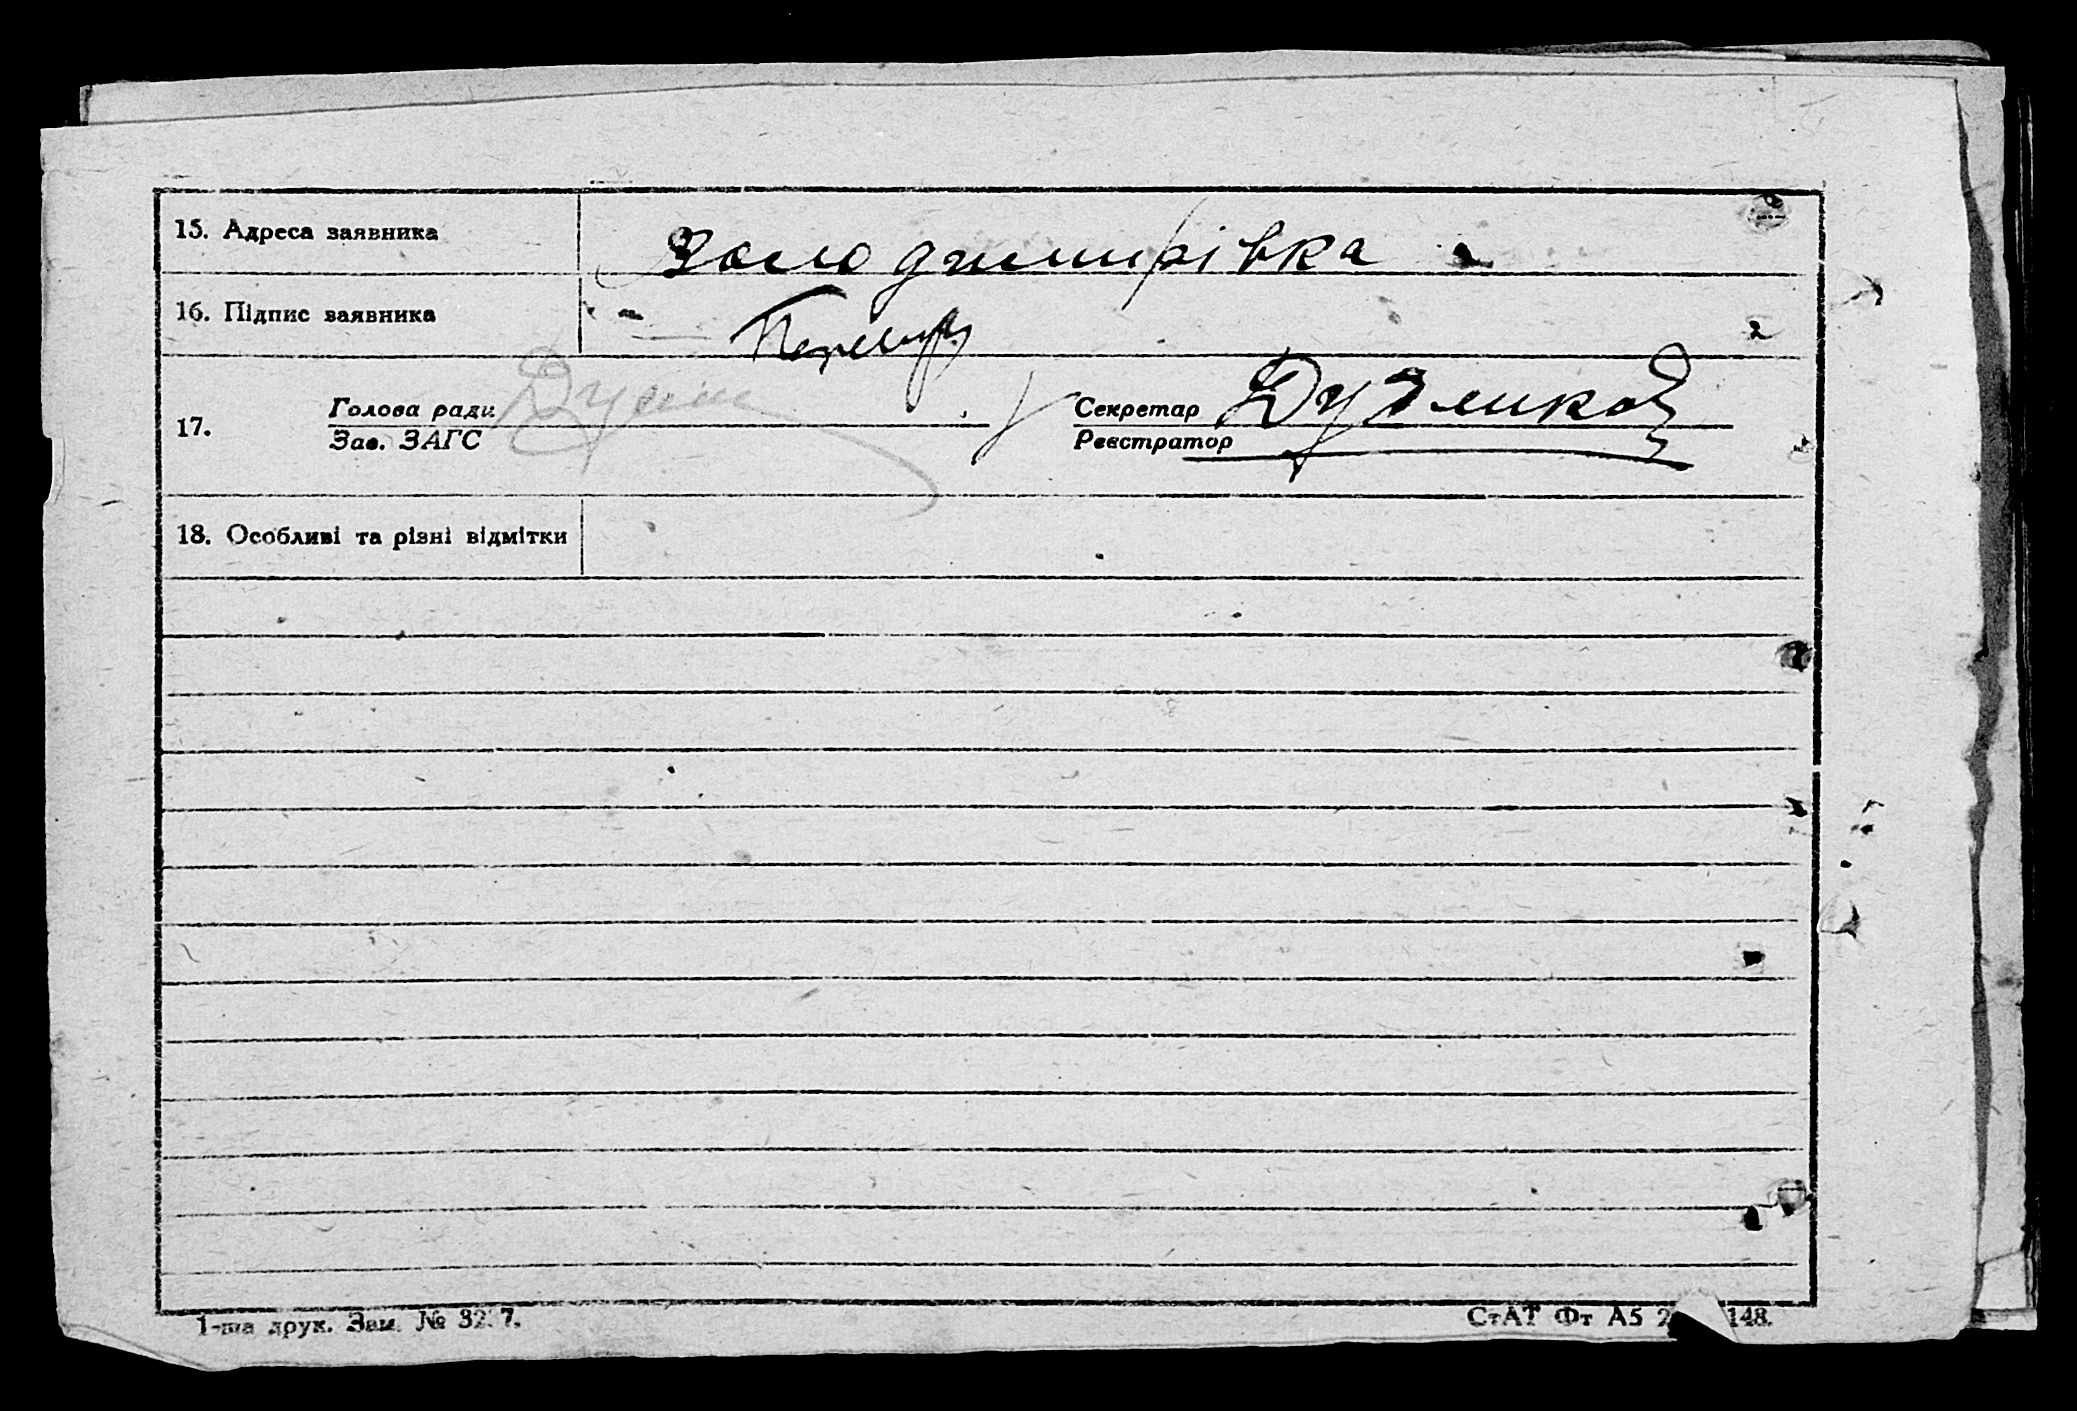 15. Адреса заявника Володимирівка
16. Підпис заявника
17. Голова ради Секретар
Зав. ЗАГС Реєстратор
18. Особливі та різні відмітки
1-ша друк. Зам. № 32 7. СтАТ Фт А5 2 148.